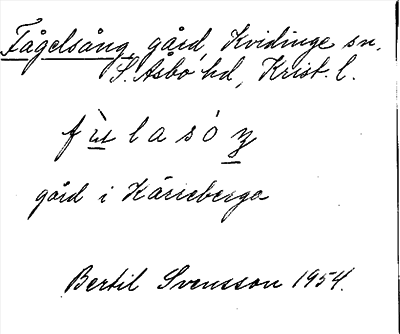 Fågelsång, gård, Kvidinge sn.
S. Åsbo hd, Krist. l.
fùlasóŋ
gård i Kärreberga
Bertil Svensson 1954.